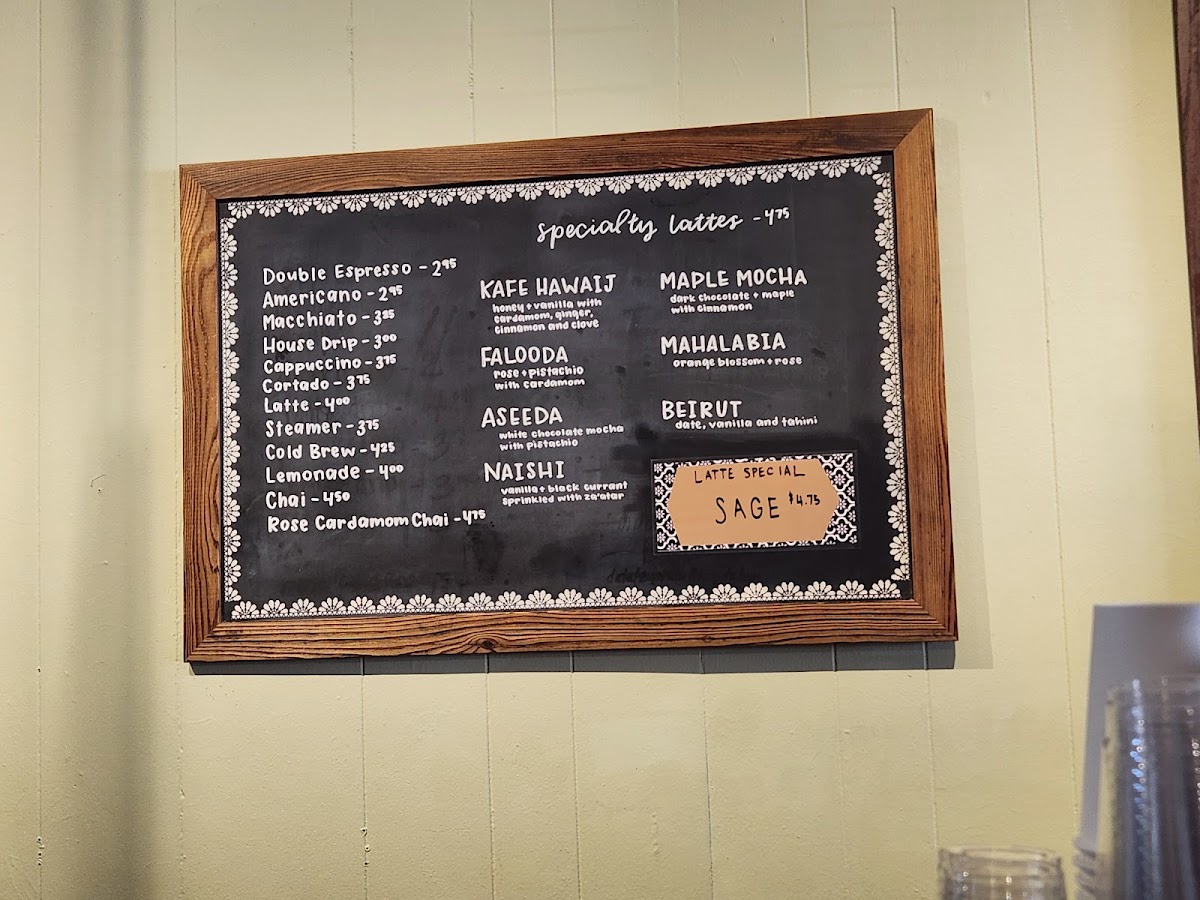 specialty lattes - 4.75
Double Espresso - 2.95
Americano - 2.95
Macchiato - 3.25
House Drip - 3.00
Cappuccino - 3.75
Cortado - 3.75
Latte - 4.00
Steamer - 3.75
Cold Brew - 4.25
Lemonade - 4.00
Chai - 4.50
Rose Cardamom Chai - 4.75
KAFE HAWAIJ
honey + vanilla with
cardamom, ginger,
cinnamon and clove
FALOODA
rose + pistachio
with cardamom
ASEEDA
white chocolate mocha
with pistachio
NAISHI
vanilla + black currant
sprinkled with za'atar
MAPLE MOCHA
dark chocolate + maple
with cinnamon
MAHALABIA
orange blossom + rose
BEIRUT
date, vanilla and tahini
LATTE SPECIAL
SAGE $4.75